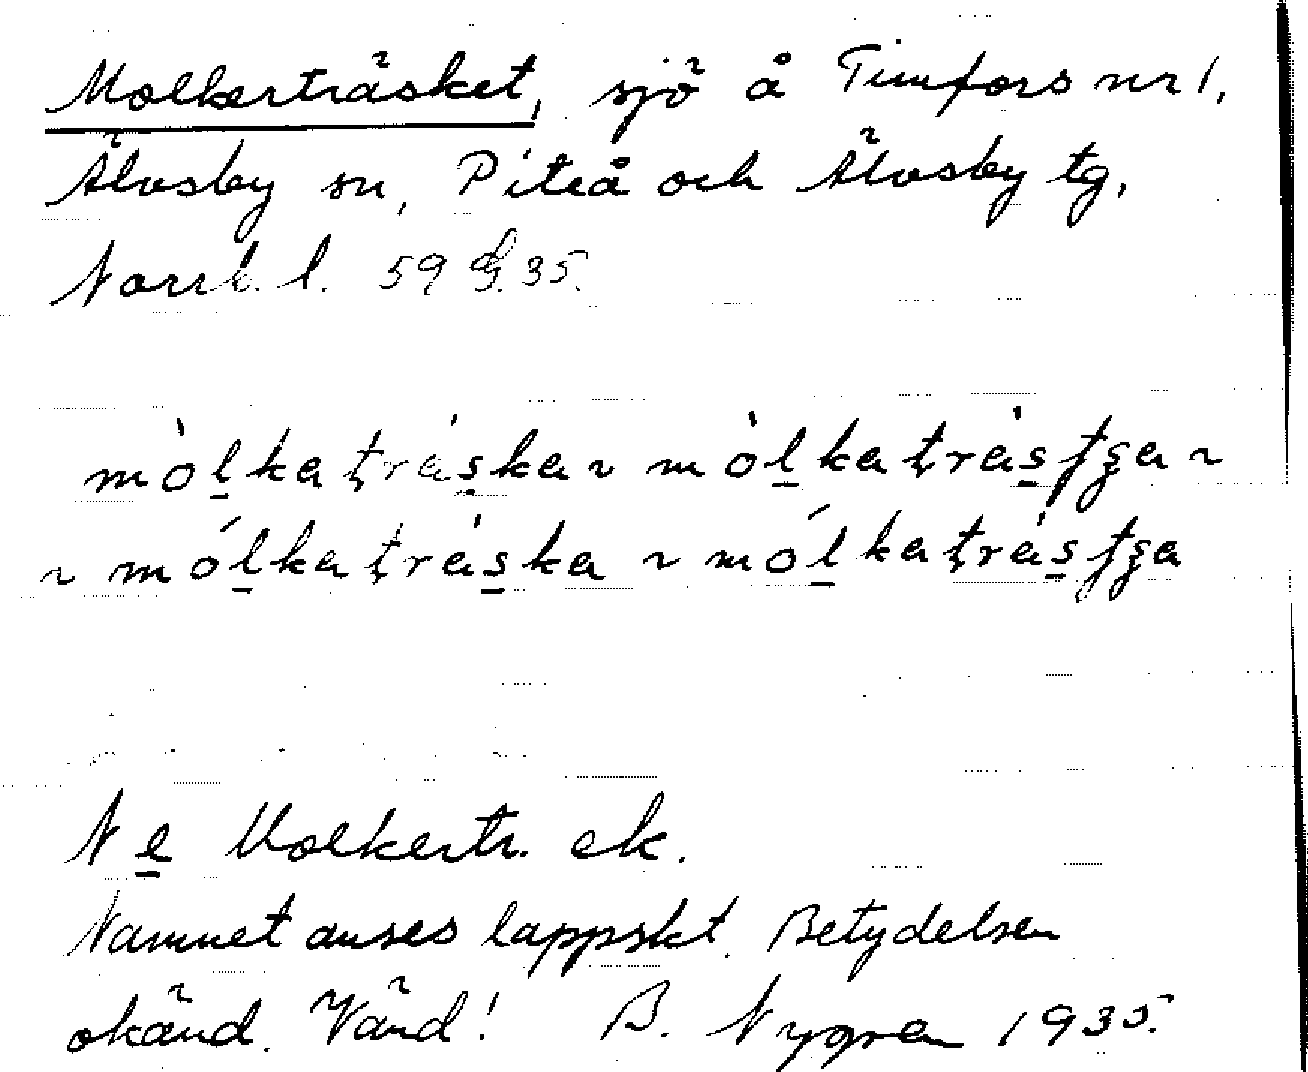 Molkerträsket, sjö å Timfors nr 1,
Älvsby sn, Piteå och Älvsby tg,
Norrb. l. 59 35.
mòlkatráska ~ mòlkatrásʃʒa ~
~ mólkatráska ~ mólkatrásʃʒa
N e Molkertr. ek.
Namnet anses lappskt. Betydelsen
okänd. Vänd! B. Nygren 1935.